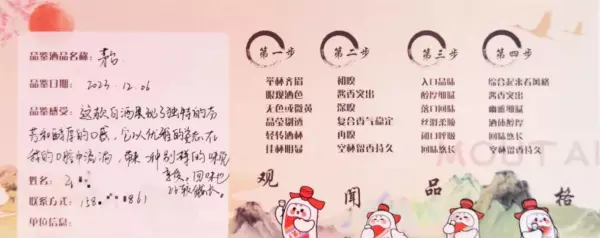 品鉴酒品名称：茅台
品鉴日期：2023.12.06
品鉴感受：这款白酒展现了独特的芳
芳和醇厚的口感，它以优雅的姿态，在
我的口腔中流淌，带来一种别样的味觉
享受，回味也
比较悠长。
姓名：
联系方式：158 861
单位信息：
第一步
举杯齐眉
眼观酒色
无色或微黄
晶莹剔透
轻转酒杯
挂杯明显
观
第二步
初嗅
酱香突出
深嗅
复合香气稳定
再嗅
空杯留香持久
闻
第三步
入口品味
醇厚细腻
落口回味
丝滑柔顺
闭口呼吸
回味悠长
品
第四步
综合起来看风格
酱香突出
幽雅细腻
酒体醇厚
回味悠长
空杯留香持久
格
MOUTAI